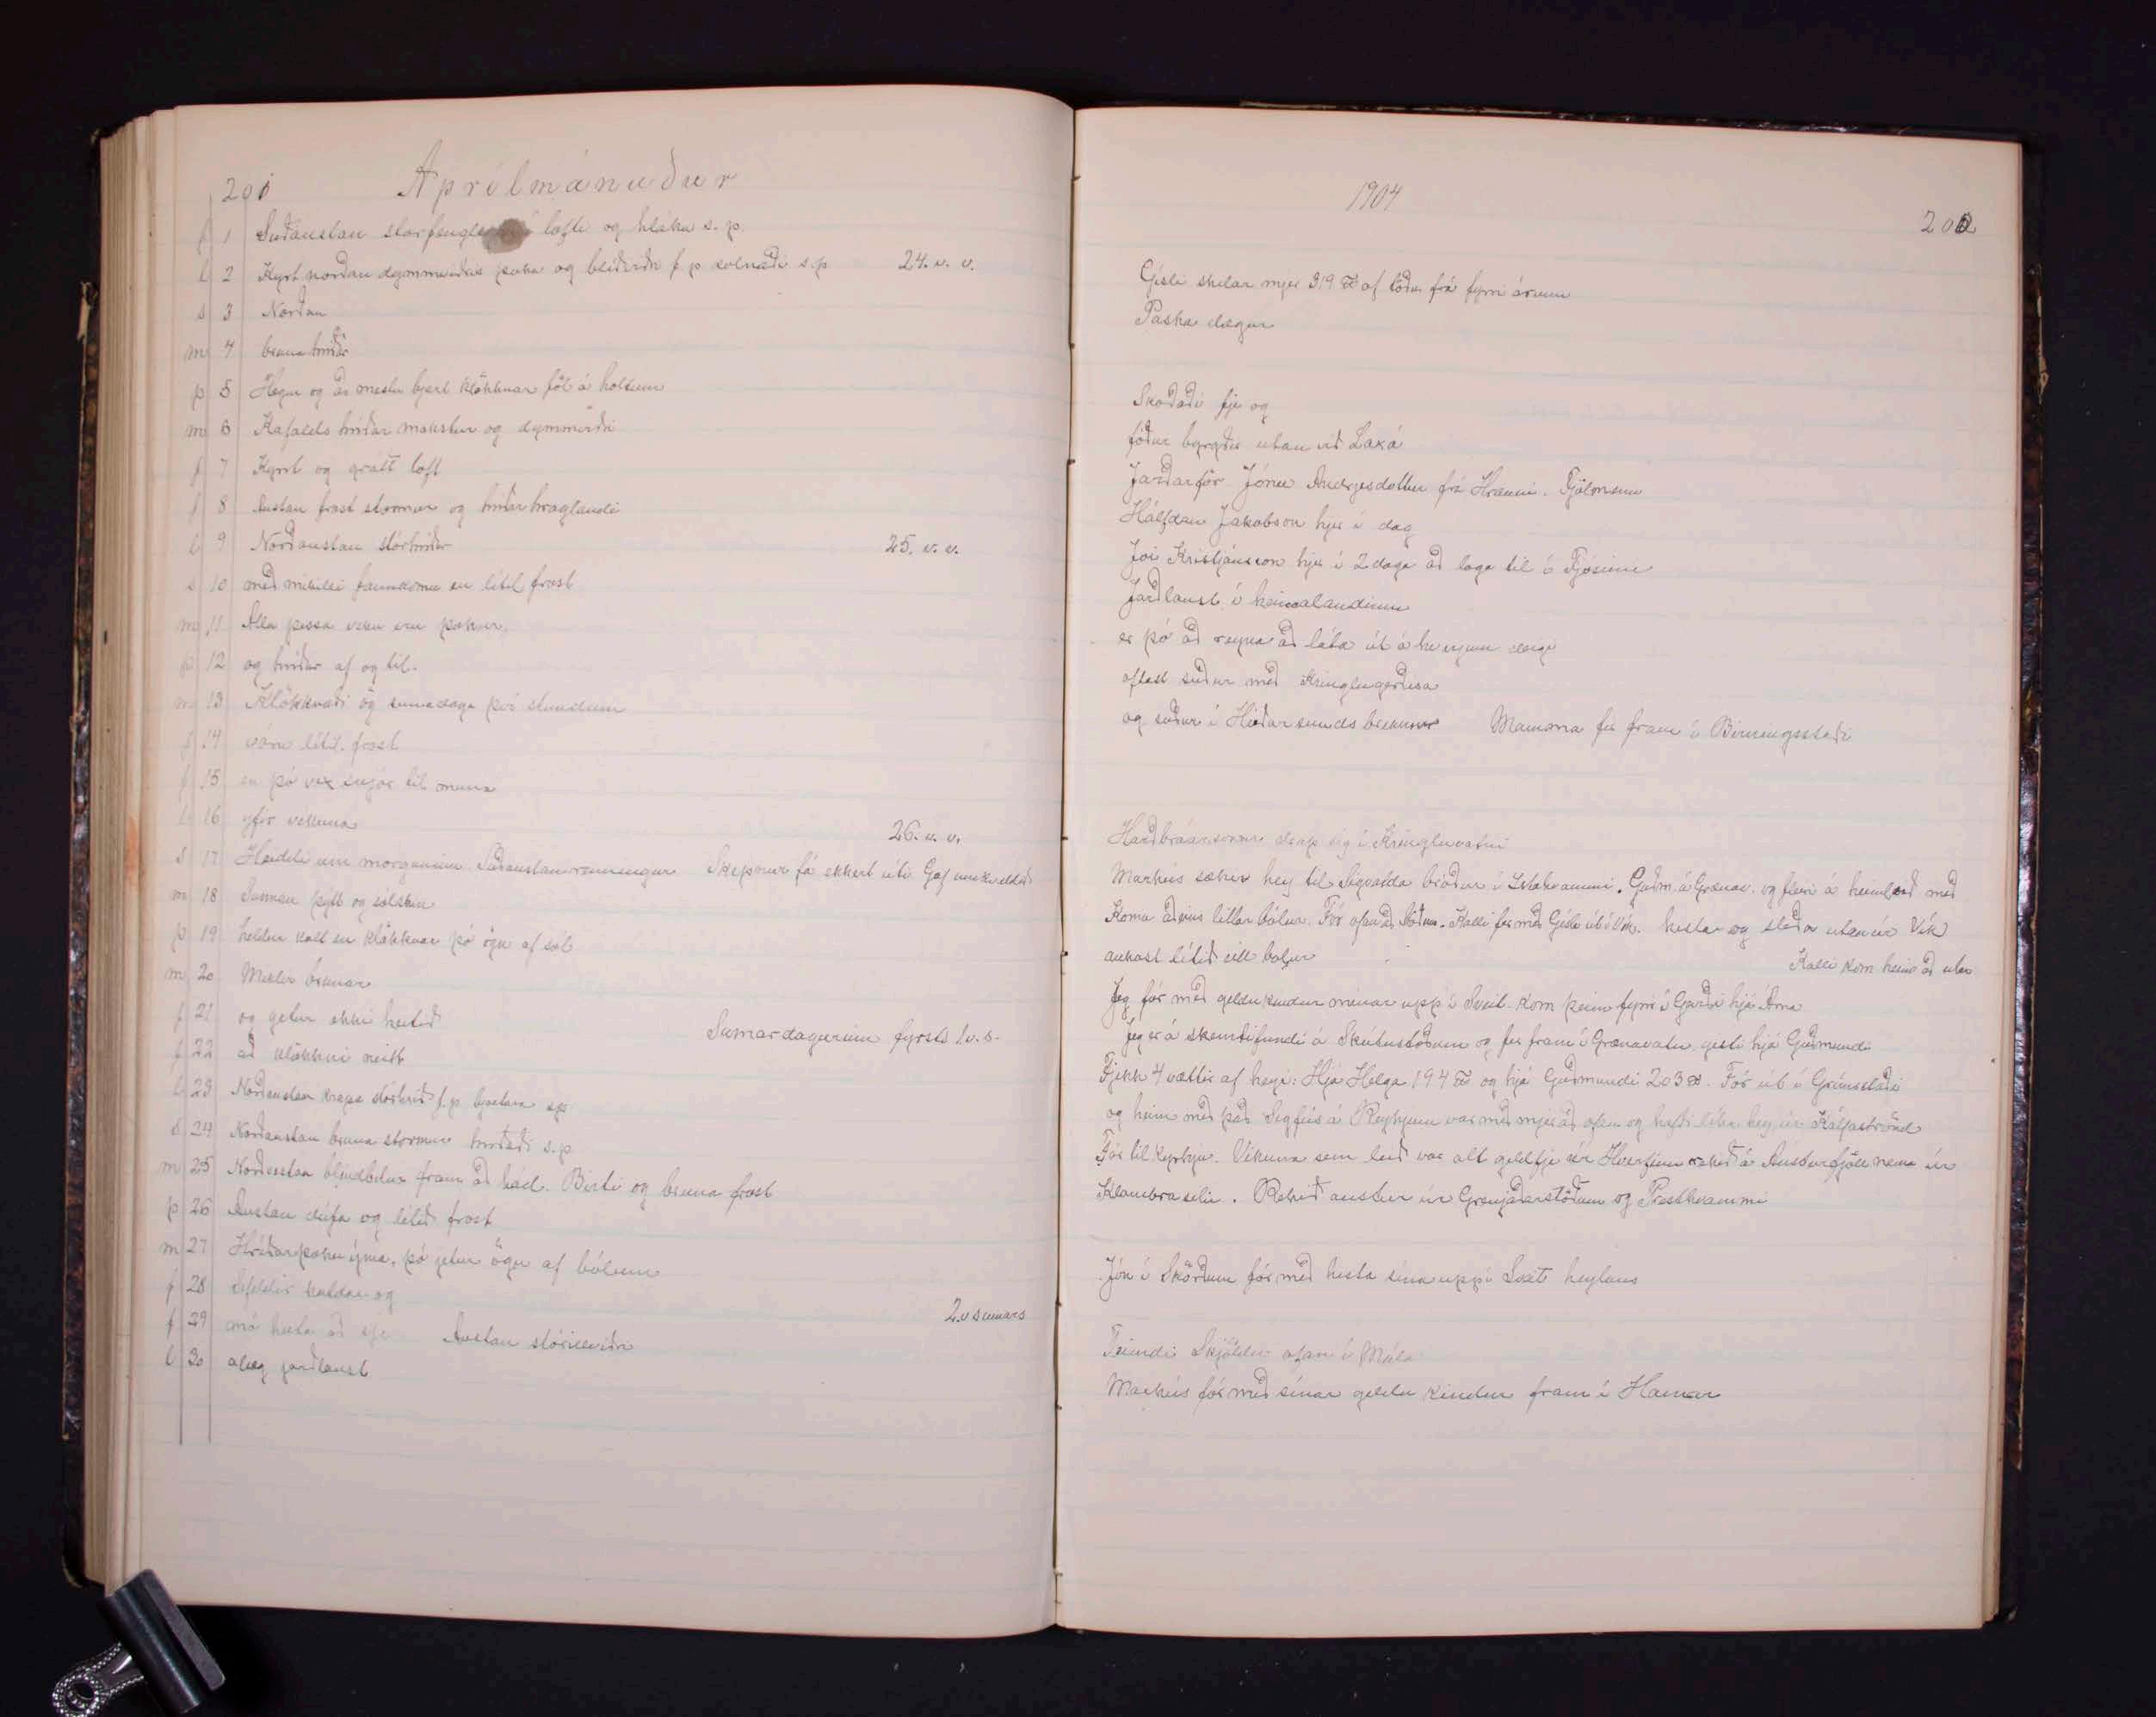 201 Aprílmánuður
f 1 Suðaustan í lofti og hláka s.p.
l 2 Kyrt norðan dymmviðris þoka og blíðviðri f p solnaði s.p 24. v. v.
s 3 Norðan
m 4 bruna hríðar
þ 5 Hægur og að mestu bjart klökknar föl á holtum
m 6 Kafalds hríðar mokstur og dymmviðri
f 7 Kyrt og grátt loft
f 8 Austan frost stormur og hríðarhraglandi
l 9 Norðaustan stórhríðar 25. v. v.
s 10 með mikilli fannkomu en lítil frost
m 11 Alla þessa viku eru þokur
þ 12 og hríðar af og til.
m 13 Klökknaði ög sumadaga því stundum
f 14 vóru lítil frost
f 15 en þó vex snjór til muna
l 16 yfir vikuna 26. v. v.
s 17 Heiddi um morguninn Suðaustan renningur Skepnur fá ekkert úti Gaf
m 18 Sunnan þýtt og sólskin
þ 19 heldur kalt en klökknar þó ögn af sól
m 20 Miklir brunar
f 21 og getur ekki heitið Sumardagurinn fyrsti 1.v.s.
f 22 að klökkni neitt
l 23 Norðaustan krapa stórhríð f.p. bjartara sp
s 24 Norðaustan bruna stormur hríðaði s.p
m 25 Norðvestan blindbilur fram að hád. Birti og bruna frost
þ 26 Austan drífa og lítið frost
m 27 Hríðarþoku ýma, þó jetur ögn af bölum
f 28 kuldar og
f 29 má heita að sje Austan stórilviðri 2.v sumars
l 30 alveg jarðlaust
1904
202
Gísli skilar mjer 319 ℔ af töðu frá fyrri árum
Páska dagur
Skoðaði fje og
fóður byrgðir utan við Laxá
Jarðarför Jónu Andrjesdóttur frá Hrauni. Fjölmenn
Hálfdan Jakobson hjer í dag
Jói Kristjánsson hjer í 2 daga að laga til í Fjósinu
Jarðlaust í heimalandinu
er þó að reyna að láta út á hverjum degi
oftast suður með Kringlugerðisá
og suður í Hríðarsunds brekkur Mamma fer fram í Birningsstaði
drap sig í Kringluvatni
Markús sækir hey til Sigvalda bróður í Hvammi. Guðm. á Grænav. og fleiri á heimleið með
Koma aðeins litlar bólur. Fór ofan að Kalli fer með Gísla út í Vík. hestar og sleða utan úr Vík
aukast lítið eitt bolur Kalli kom heim að utan
Jeg fór með geldu kindur mínar upp í Sveit. Kom þeim fyrir í Garði hjá Árna
Jeg er á skemtifundi á Skútustöðum og fer fram í Grænavatn gisti hjá Guðmundi
Fjekk 4 vættir af heyi: Hjá Helga 194 ℔ og hjá Guðmundi 203 ℔. Fór út í Grímsstaði
og heim með það Sigfús á Reykjum var með mjer að ofan og hafði hey úr Kálfaströnd
Fór til kyrkju. Vikuna sem leið var alt geldfje úr Hverfinu rekið á Austurfjöll nema úr
Klambraseli. Rekið austur úr Grenjaðarstöðum og Presthvammi
Jón í Skörðum fór með hesta sína upp í Sveit heylaus
Teimdi Skjöldu ofan í Múla
Markús fór með sínar geldu kindur fram í Hamar